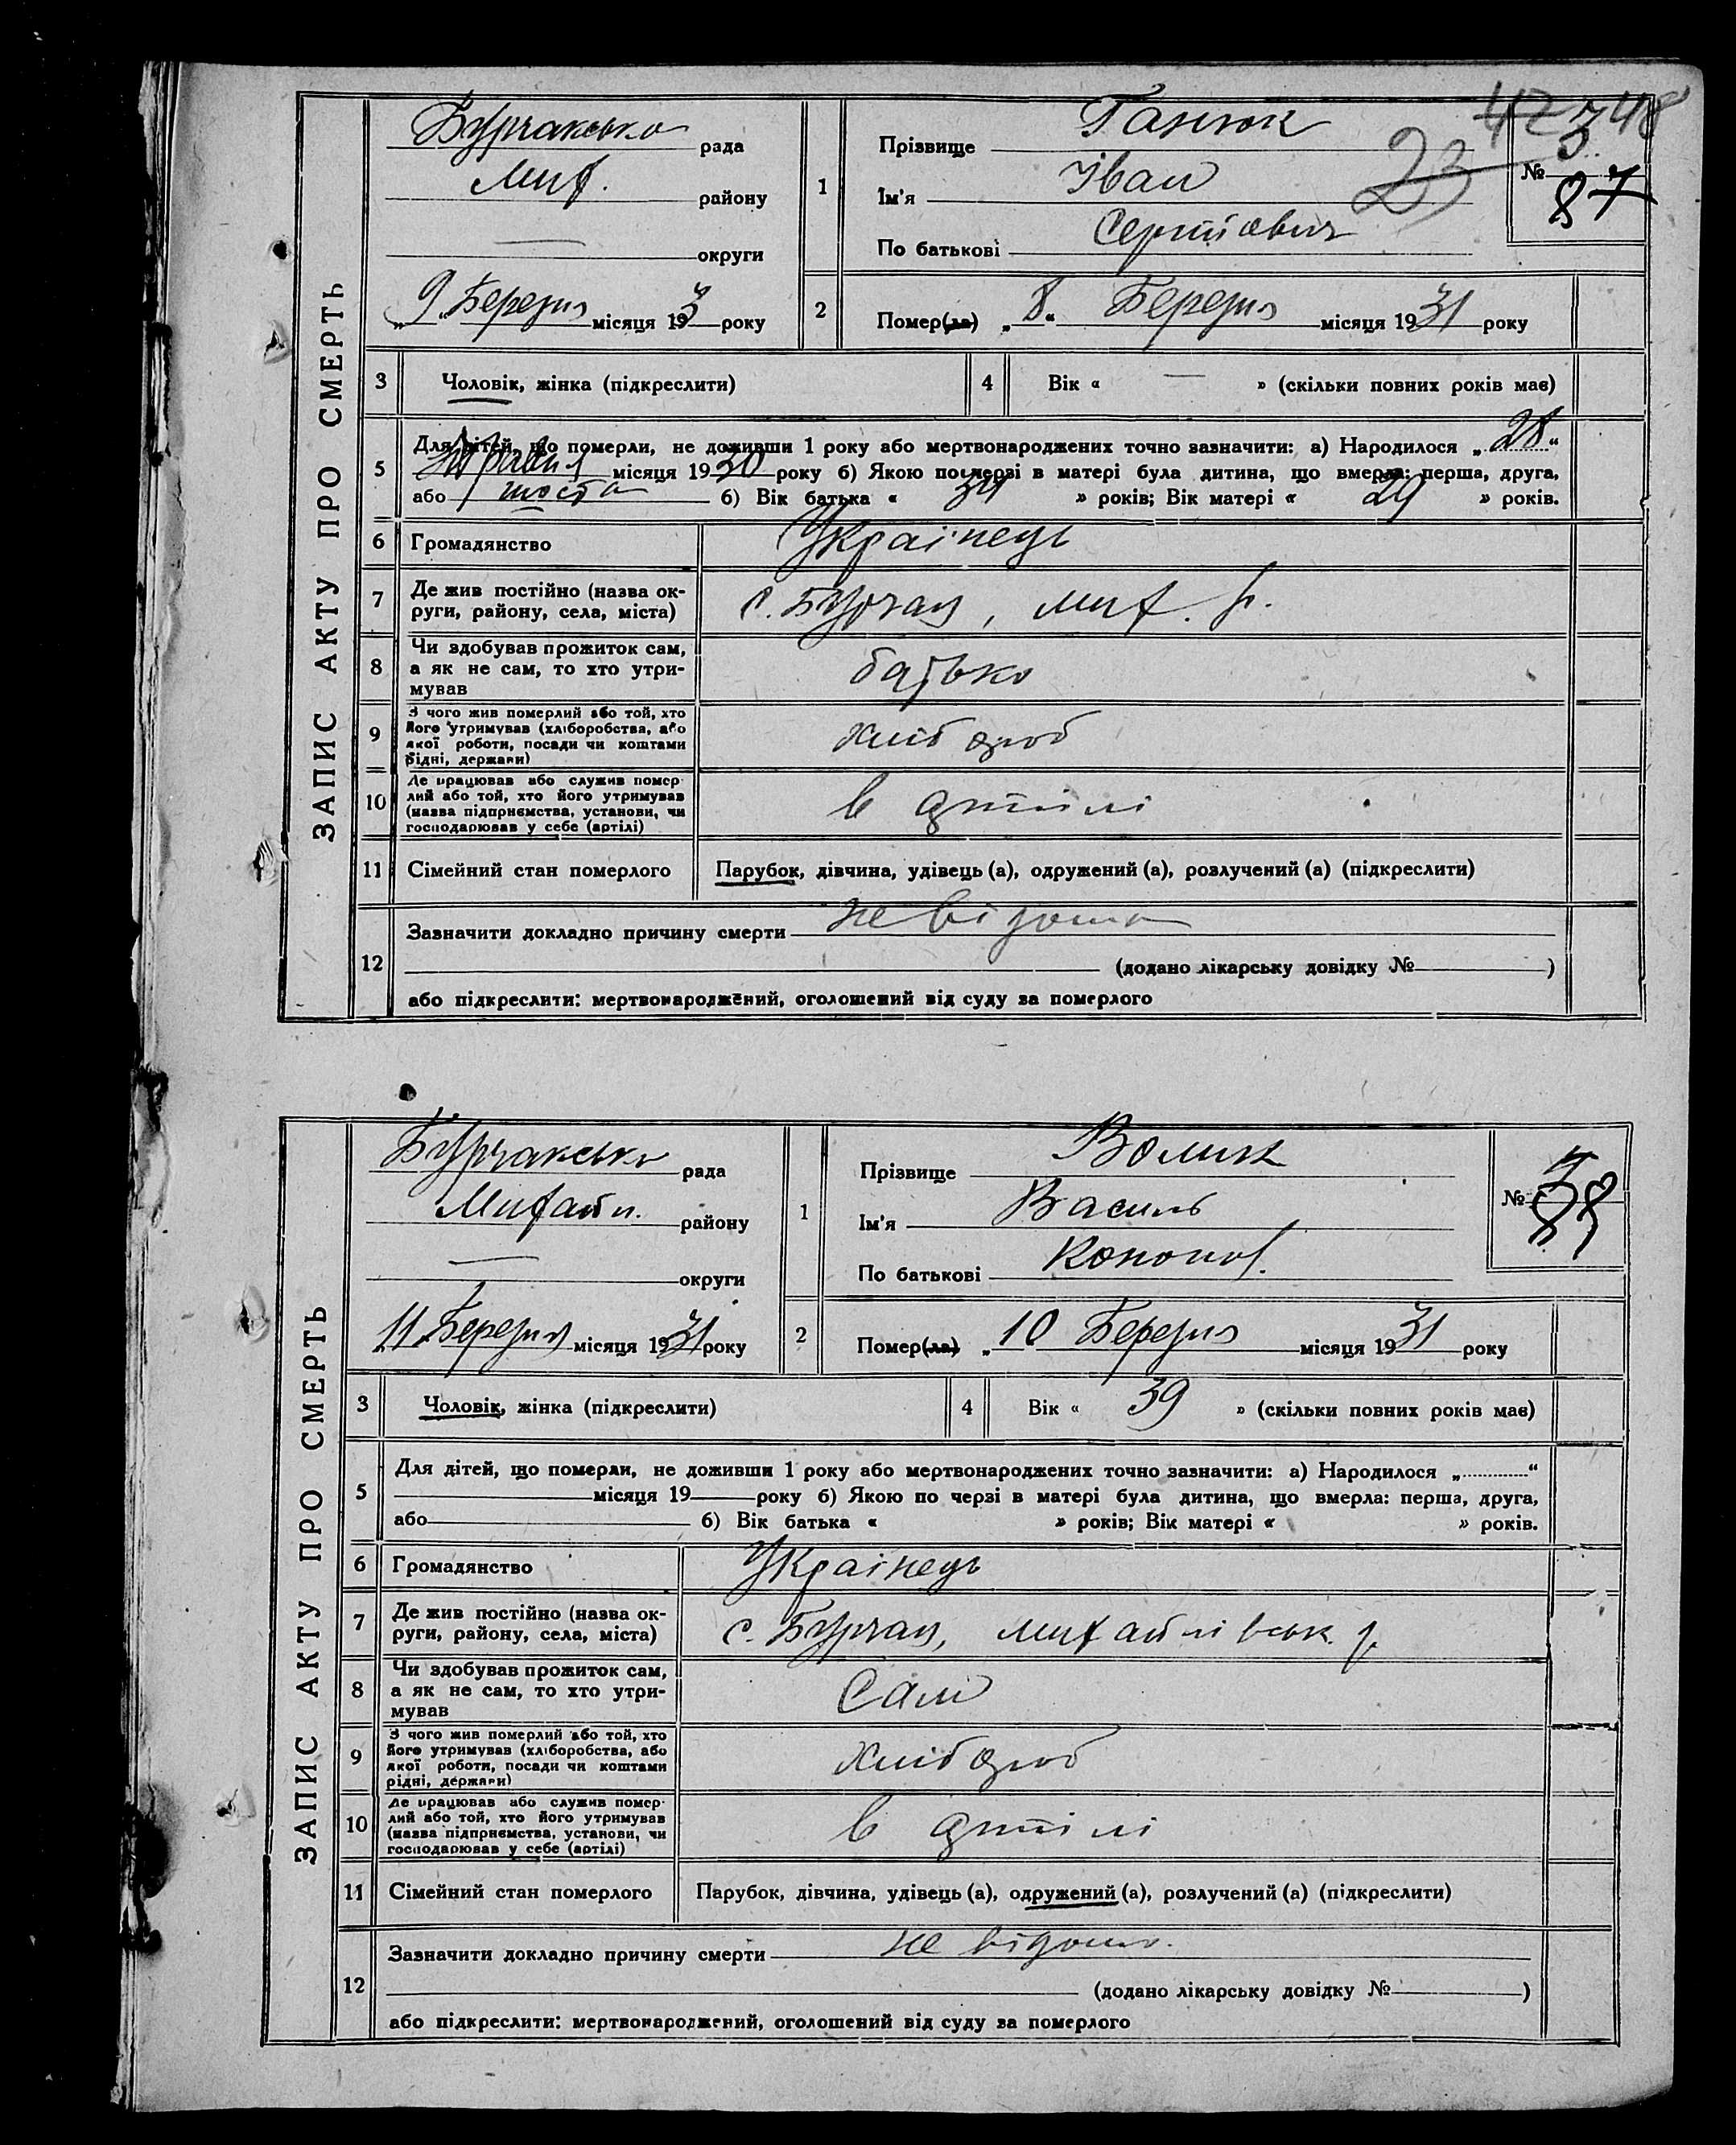 42 48
23
ЗАПИС АКТУ ПРО СМЕРТЬ
Бурчакська рада
Мих. району
— округи
„9“ Березня місяця 193 року
1
Прізвище Ганюк
Ім'я Іван
По батькові Сергійович
№ 3
87
2
Помер(ла) „8“ Березня місяця 1931 року
3 Чоловік, жінка (підкреслити)
4 Вік « — » (скільки повних років має)
5 Для дітей, що померли, не доживши 1 року або мертвонароджених точно зазначити: а) Народилося „28“
місяця 1930 року б) Якою по черзі в матері була дитина, що вмерла: перша, друга,
або шоста б) Вік батька « 34 » років; Вік матері « 29 » років.
6 Громадянство Українець
7 Де жив постійно (назва ок-
руги, району, села, міста) с. Бурчак, мих. р.
8 Чи здобував прожиток сам,
а як не сам, то хто утри-
мував батько
9 З чого жив померлий або той, хто
його утримував (хліборобства, або
якої роботи, посади чи коштами
рідні, держави) хлібороб
10 Де працював або служив помер-
лий або той, хто його утримував
(назва підприємства, установи, чи
господарював у себе (артілі) в артілі
11 Сімейний стан померлого Парубок, дівчина, удівець (а), одружений (а), розлучений (а) (підкреслити)
12 Зазначити докладно причину смерти не відома
(додано лікарську довідку № )
або підкреслити: мертвонароджений, оголошений від суду за померлого
ЗАПИС АКТУ ПРО СМЕРТЬ
Бурчакська рада
Михайл. району
— округи
„11“ Березня місяця 1931 року
1
Прізвище Волик
Ім'я Василь
По батькові Кононов.
№ 4
88
2
Помер(ла) „10 Березня місяця 1931 року
3 Чоловік, жінка (підкреслити)
4 Вік « 39 » (скільки повних років має)
5 Для дітей, що померли, не доживши 1 року або мертвонароджених точно зазначити: а) Народилося „ “
місяця 19 року б) Якою по черзі в матері була дитина, що вмерла: перша, друга,
або б) Вік батька « » років; Вік матері « » років.
6 Громадянство Українець
7 Де жив постійно (назва ок-
руги, району, села, міста) с. Бурчак, михайлівськ. р.
8 Чи здобував прожиток сам,
а як не сам, то хто утри-
мував Сам
9 З чого жив померлий або той, хто
його утримував (хліборобства, або
якої роботи, посади чи коштами
рідні, держави) хлібороб
10 Де працював або служив помер-
лий або той, хто його утримував
(назва підприємства, установи, чи
господарював у себе (артілі) в артілі
11 Сімейний стан померлого Парубок, дівчина, удівець (а), одружений (а), розлучений (а) (підкреслити)
12 Зазначити докладно причину смерти не відомо.
(додано лікарську довідку № )
або підкреслити: мертвонароджений, оголошений від суду за померлого